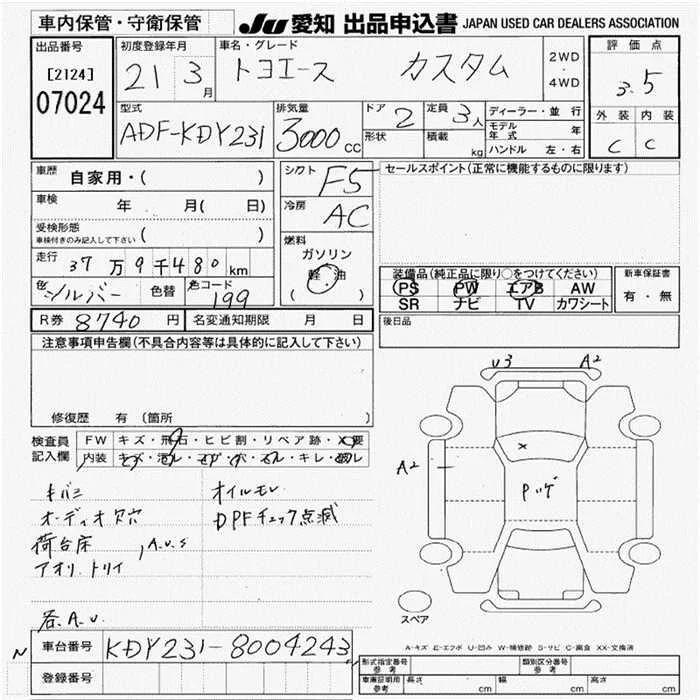 車内保管・守衛保管
JU 愛知 出品申込書 JAPAN USED CAR DEALERS ASSOCIATION
出品番号
[2124]
07024
初度登録年月
21 3月
車名・グレード
トヨエース カスタム
2WD
・
4WD
評価点
3.5
外装 内装
C C
型式
ADF-KDY231
排気量
3000cc
ドア 2
形状
定員 3人
積載 kg
ディーラー・並行
モデル年式 年
ハンドル 左・右
車歴 自家用・( )
車検 年 月( 日)
受検形態
車検付きのみ記入して下さい ( )
走行 37万9千480km
色 シルバー 色替 色コード 199
シフト F5
冷房 AC
燃料
ガソリン
軽・油
( )
セールスポイント(正常に機能するものに限ります)
装備品(純正品に限り○をつけてください)
PS PW エアB AW
SR ナビ TV カワシート
新車保証書
有・無
R券 8740円 名変通知期限 月 日
後日品
注意事項申告欄(不具合内容等は具体的に記入して下さい)
修復歴 有 (箇所
検査員
記入欄
FW キズ・飛石・ヒビ割・リペア跡・×要
内装
キバミ
オーディオ欠穴
荷台床
アオリ.トリイ
,A.U.S
各A.U.
オイルモレ
DPFチェック点滅
U3 A2
A2
×
Pハゲ
スペア
A-キズ E-エクボ U-凹み W-補修跡 S-サビ C-腐食 XX-交換済
N
車台番号 KDY231-8004243
登録番号
形式指定番号
参考
類別区分番号
参考
車庫証明用
参考
長さ cm 幅 cm 高さ cm